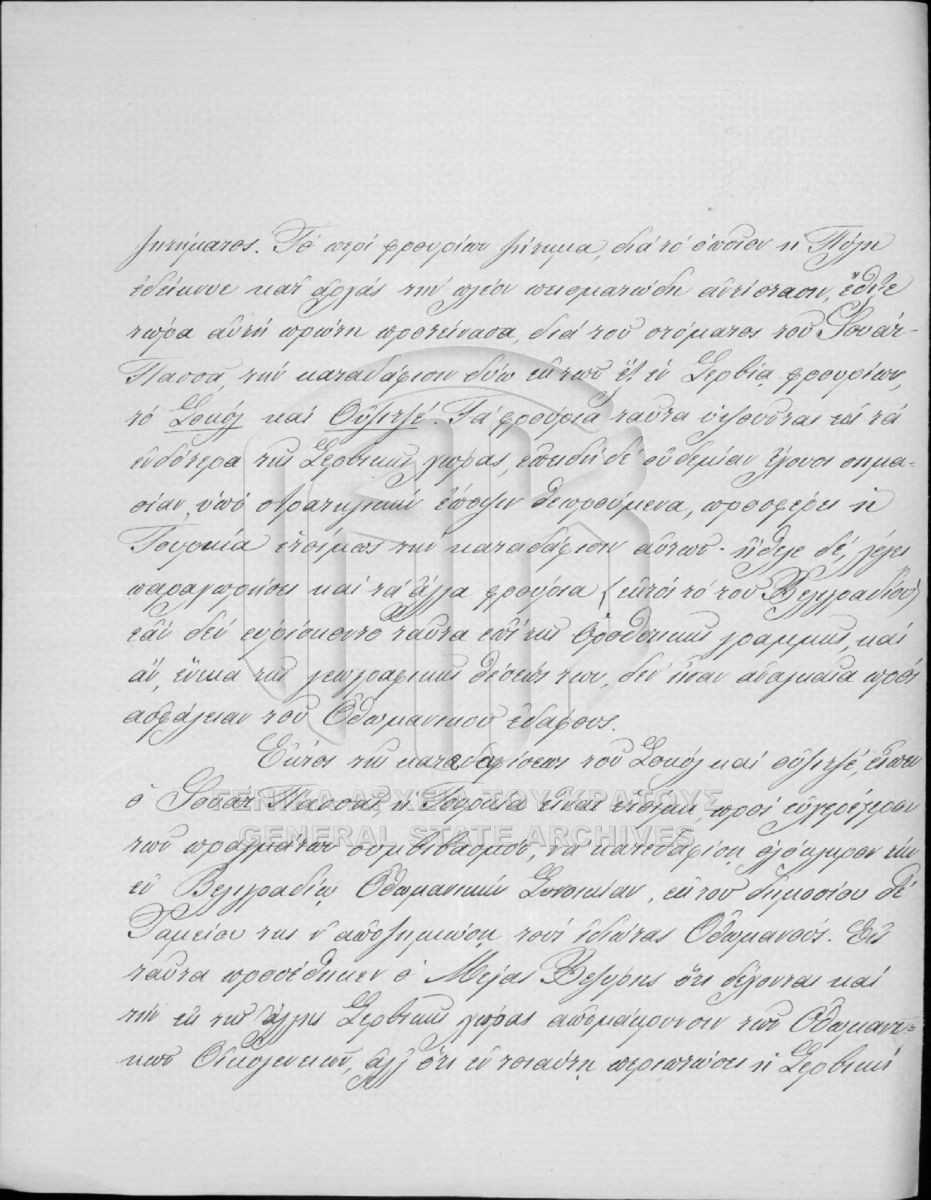 ζητήματος. Τὸ περὶ φρουρίων ζήτημα, διὰ τὸ ὁποῖον ἡ Πύλη
ἐδείκνυε κατ' ἀρχὰς τὴν πλέον πεισματώδη ἀντίστασιν, ἔθιξε
τώρα αὐτὴ πρώτη προτείνασα, διὰ τοῦ στόματος τοῦ Φουὰτ-
Πασσᾶ, τὴν κατεδάφισιν δύω ἐκ τῶν ἓξ ἐν Σερβίᾳ φρουρίων,
τὸ Σοκὸλ καὶ Οὔζιτζε. Τὰ φρούρια ταῦτα ὑψοῦνται εἰς τὰ
ἐνδότερα τῆς Σερβικῆς χώρας, ἐπειδὴ δὲ οὐδεμίαν ἔχουσι σημα-
σίαν, ὑπὸ στρατηγικὴν ἔποψιν θεωρούμενα, προσφέρει ἡ
Τουρκία ἑτοίμως τὴν κατεδάφισιν αὐτῶν· ἤθελε δέ, λέγει
παραχωρήσει καὶ τὰ ἄλλα φρούρια (ἐκτὸς τὸ τοῦ Βελιγραδίου)
ἐὰν δὲν εὑρίσκοντο ταῦτα ἐπὶ τῆς ὁροθετικῆς γραμμῆς, καὶ
ἄν, ἕνεκα τῆς γεωγραφικῆς θέσεώς των, δὲν ἦσαν ἀναγκαῖα πρὸς
ἀσφάλειαν τοῦ Ὀθωμανικοῦ ἐδάφους.
Ἐκτὸς τῆς κατεδαφίσεως τοῦ Σοκὸλ καὶ Οὔζιτζε, εἶπεν
ὁ Φουὰτ Πασσᾶς, ἡ Τουρκία εἶναι ἑτοίμη, πρὸς εὐχερέστερον
τῶν πραγμάτων συμβιβασμόν, νὰ κατεδαφίσῃ ὁλόκληρον τὴν
ἐν Βελιγραδίῳ Ὀθωμανικὴν Συνοικίαν, ἐκ τοῦ δημοσίου δὲ
Ταμείου της ν' ἀποζημιώσῃ τοὺς ἰδιώτας Ὀθωμανούς. Εἰς
ταῦτα προσέθηκεν ὁ Μέγας Βεζύρης ὅτι δέχονται καὶ
τὴν ἐκ τῆς ἄλλης Σερβικῆς χώρας ἀπομάκρυνσιν τῶν Ὀθωμανι-
κῶν Οἰκογενειῶν, ἀλλ' ὅτι ἐν τοιαύτῃ περιπτώσει ἡ Σερβικὴ
ΓΕΝΙΚΑ ΑΡΧΕΙΑ ΤΟΥ ΚΡΑΤΟΥΣ
GENERAL STATE ARCHIVES